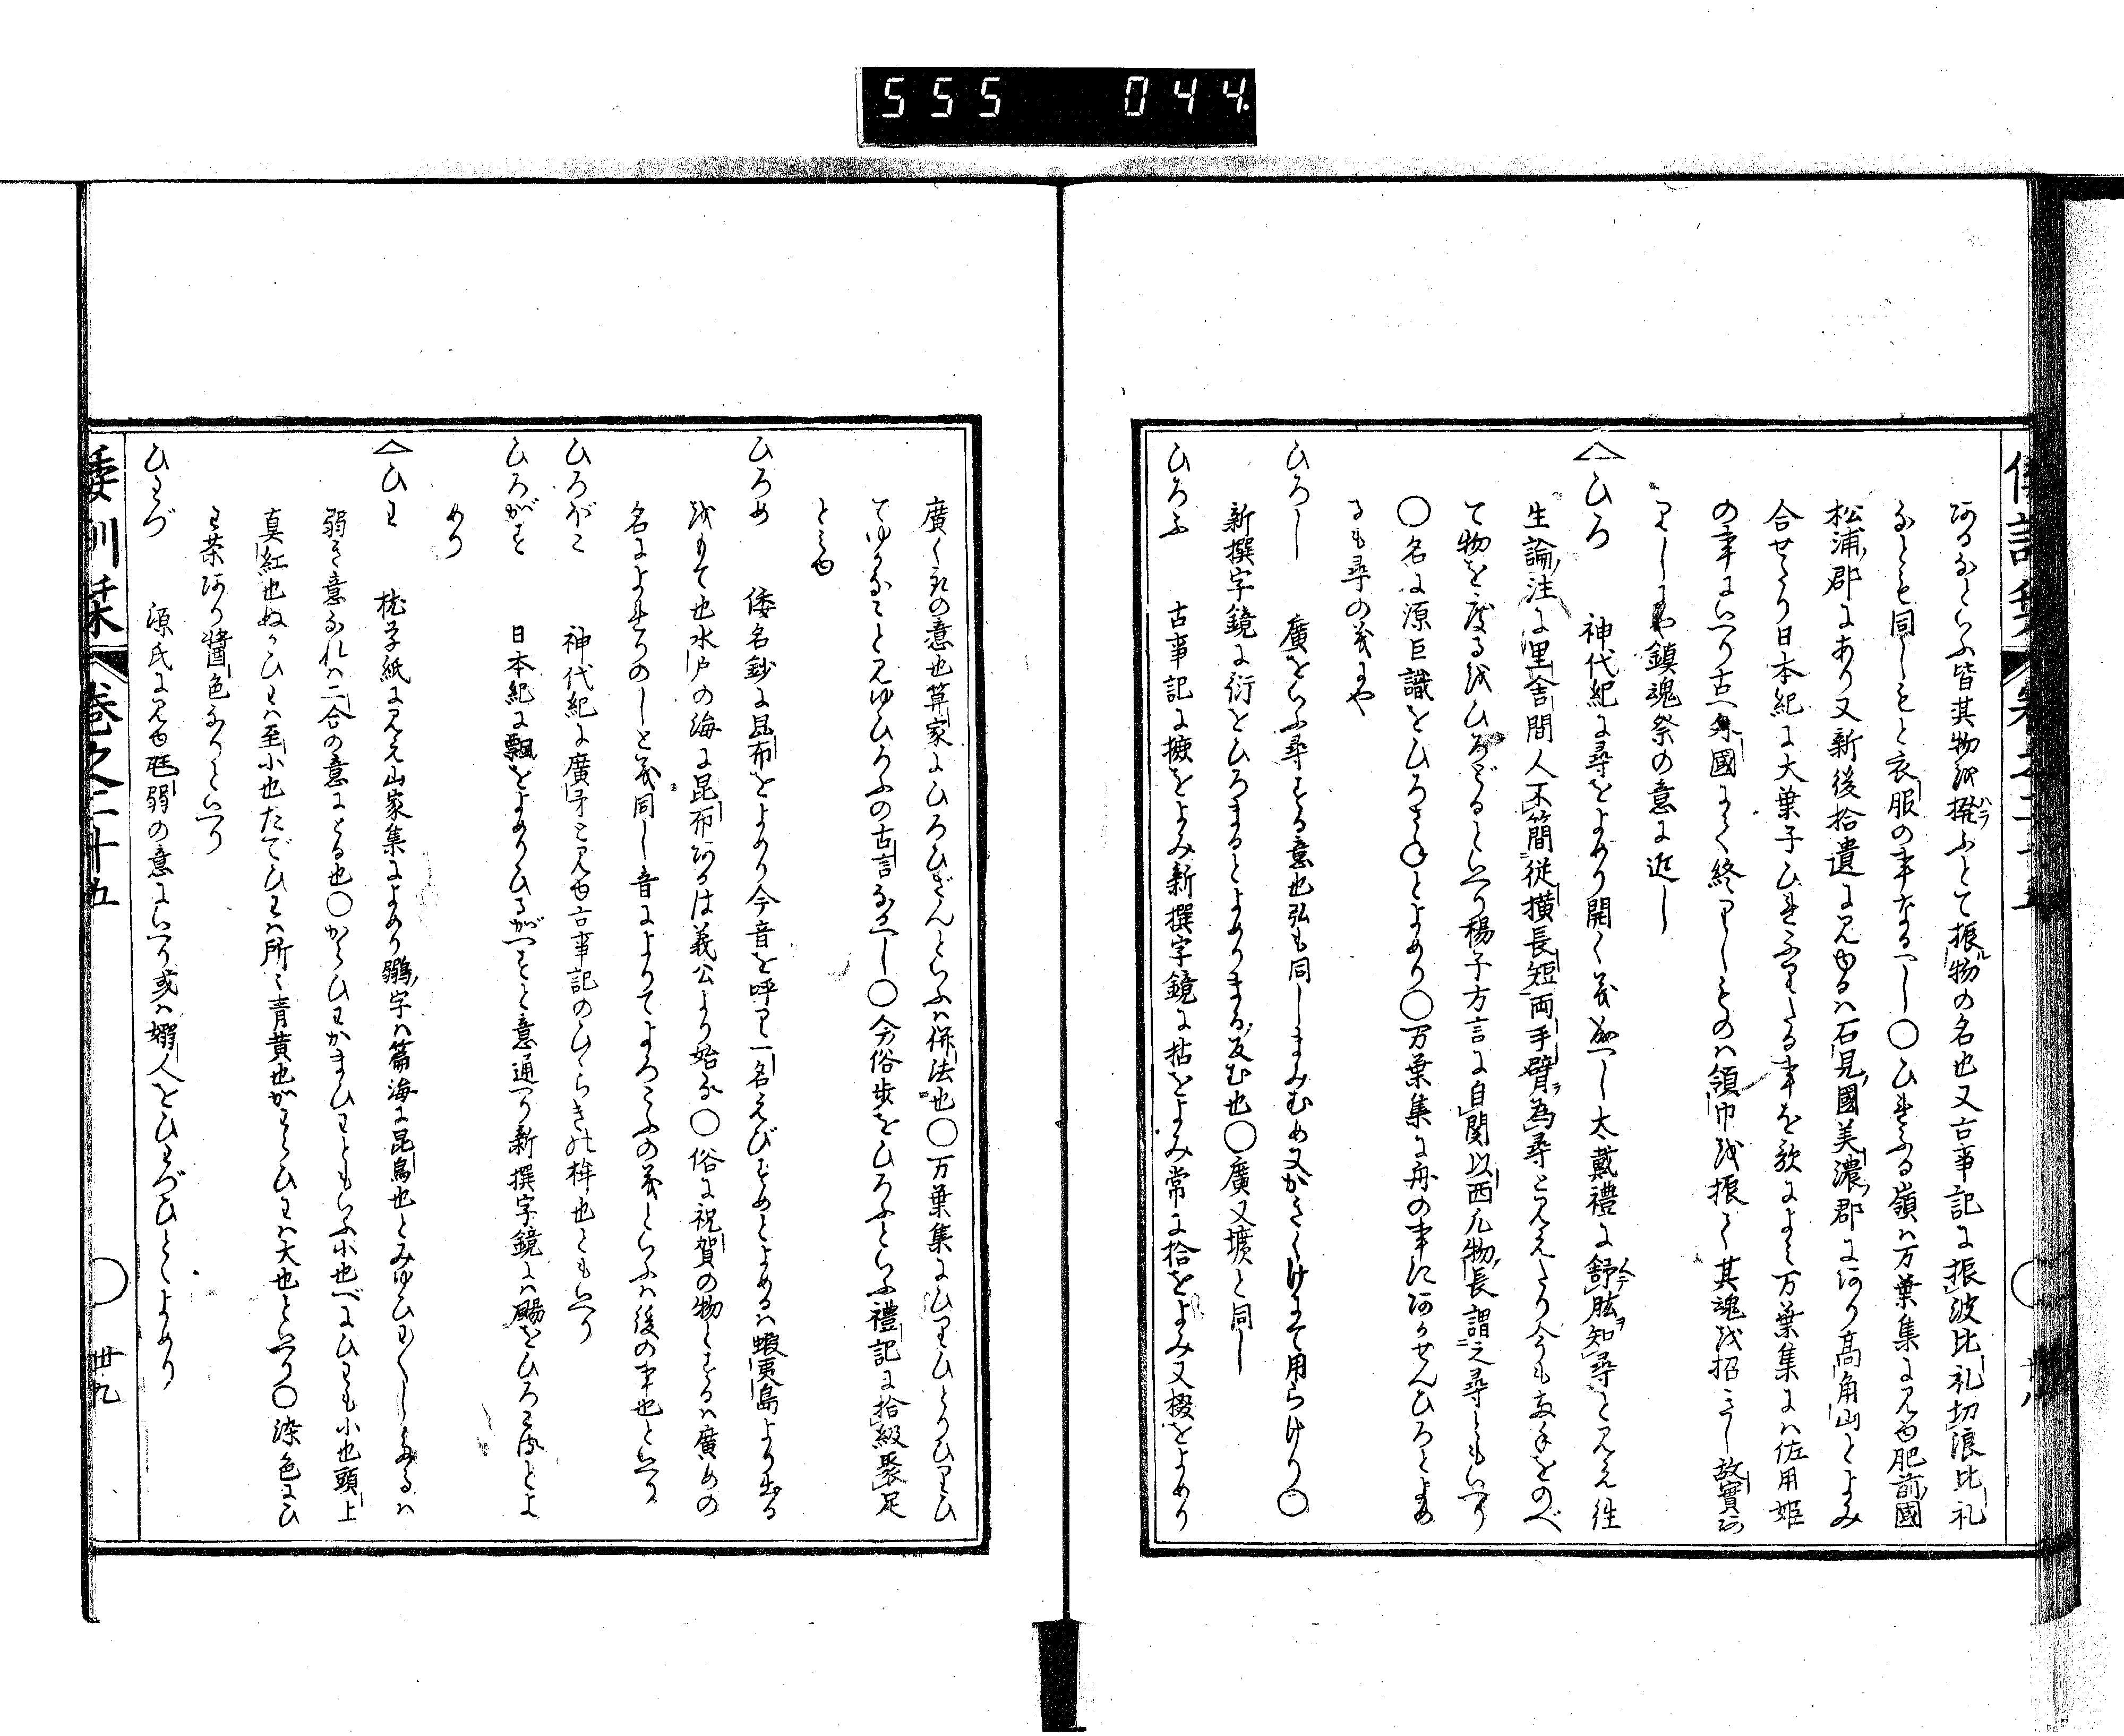 555 044
倭訓栞 巻之二十五 ○ 卅八
阿るなといふ皆其物を撥ふとて振物の名也又古事記に振波比礼切浪比礼
なとも同しもと衣服の事なるへし○ひれふる嶺ハ万葉集に見ゆ肥前國
松浦郡にあり又新後拾遺に見ゆるハ石見國美濃郡にあり高角山とよみ
合せたり日本紀に大葉子ひれふりたる事を歌によみ万葉集にハ佐用姫
の事にいへり古へ外國にて終りしものハ領巾を振て其魂を招きし故實あ
りしにや鎮魂祭の意に近し
ひろ 神代紀に尋をよめり開く義なへし大戴禮に舒肱知尋と見え往
生論注に里舎間人不簡従横長短両手臂為尋と見えたり今も両手をのべ
て物を度るをひろどるといへり楊子方言に自関以西凡物長謂之尋ともいへり
○名に源巨識をひろさねとよめり○万葉集に舟の事にあるせんひろとよめ
るも尋の義にや
ひろし 廣をいふ尋する意也弘も同しまみむめ又かきくけにて用らけり○
新撰字鏡に衍をひろまるとよめりまる反む也○廣又壙と同し
ひろふ 古事記に摭をよみ新撰字鏡に拈をよみ常に拾をよみ又掇をよめり
廣く取の意也算家にひろひざんといふハ併法也○万葉集にひりひとりひりひ
てゆかなことみゆひろふの古言なへし○今俗歩をひろふといふ禮記に拾級聚足
とみゆ
ひろめ 倭名鈔に昆布をよめり今音を呼り一名えびすめとよめるハ蝦夷島より出る
をもて也水戸の海に昆布あるは義公より始る○俗に祝賀の物とするハ廣めの
名によれりのしと義同し音によりてよろこふの義といふハ後の事也といへり
ひろぼこ 神代紀に廣矛と見ゆ古事記のひゝらき能桙也ともいへり
ひろがす 日本紀に飄をよめりひるがへすと意通へり新撰字鏡にハ颺をひろこすとよ
めり
ひわ 枕草紙に見え山家集によめり鶸字ハ篇海に昆鳥也とみゆひわ〳〵しとあるハ
弱き意なれハ二合の意にとる也○からひわかまひわともいふ小也べにひわも小也頭上
真紅也ぬかひわハ至小也たでひわハ所々青黄也がわらひわハ大也といへり○染色にひ
わ茶あり醤色なりといへり
ひわづ 源氏に見ゆ尫弱の意にいへり或ハ嫋人をひわづひとゝよめり
倭訓栞 巻之二十五 ○ 卅九